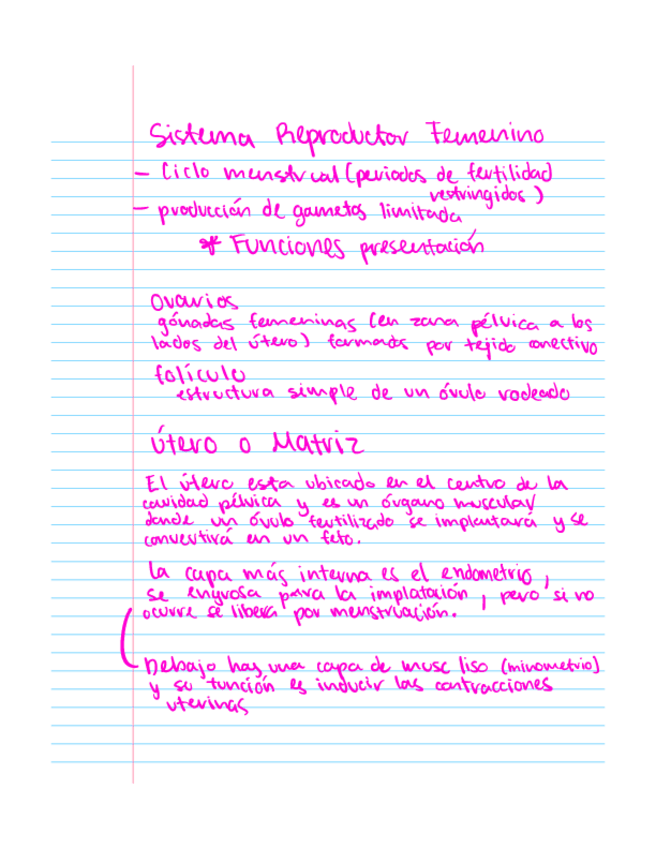 Sistema Reproductor Femenino
- Ciclo menstrual (periodos de fertilidad
restringidos)
- producción de gametos limitada
* Funciones presentación
Ovarios
gónadas femeninas (en zona pélvica a los
lados del útero) formados por tejido conectivo
folículo
estructura simple de un óvulo rodeado
Útero o Matriz
El útero esta ubicado en el centro de la
cavidad pélvica y es un órgano muscular
donde un óvulo fertilizado se implantará y se
convertirá en un feto.
La capa más interna es el endometrio,
se engrosa para la implatación, pero si no
ocurre se libera por menstruación.
Debajo hay una capa de musc liso (minometrio)
y su función es inducir las contracciones
uterinas